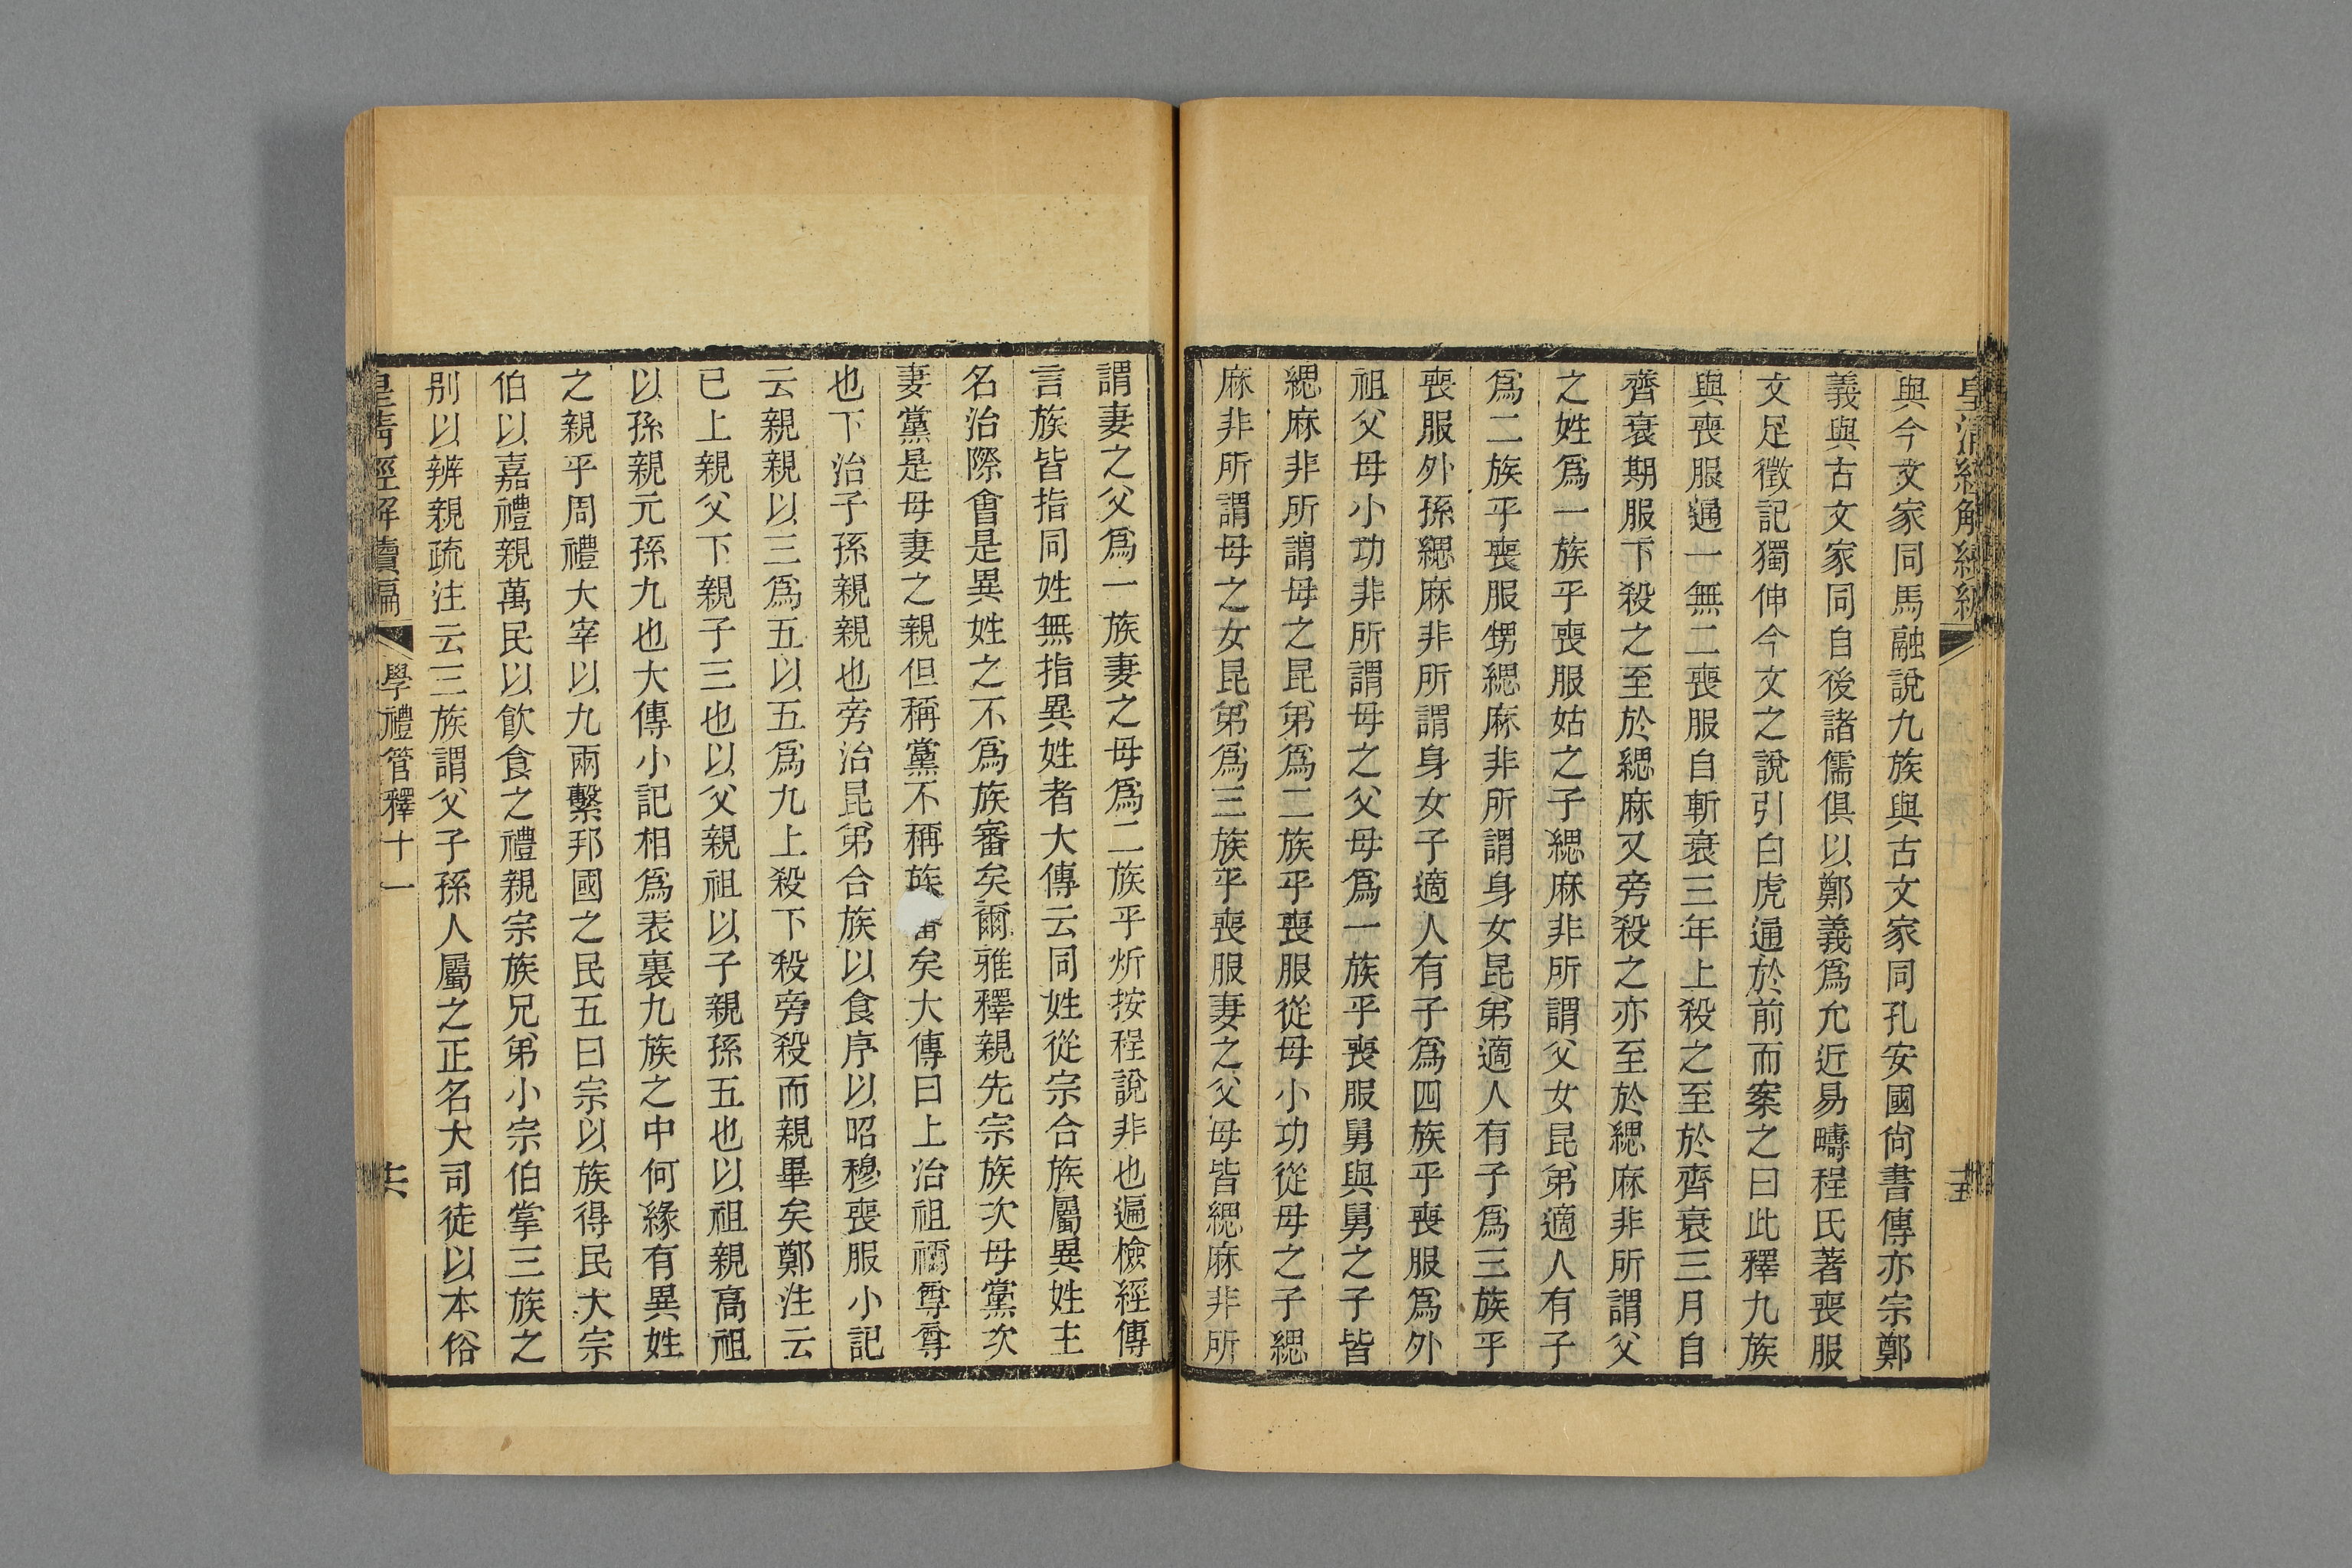 皇清經解續編
與今文家同馬融說九族與古文家同孔安國尙書傳亦宗鄭
義與古文家同自後諸儒俱以鄭義爲允近易疇程氏著喪服
文足徵記獨伸今文之說引白虎通於前而案之曰此釋九族
與喪服通一無二喪服自斬衰三年上殺之至於齊衰三月自
齊衰期服下殺之至於緦麻又旁殺之亦至於緦麻非所謂父
之姓爲一族乎喪服姑之子緦麻非所謂父女昆弟適人有子
爲二族乎喪服甥緦麻非所謂身女昆弟適人有子爲三族乎
喪服外孫緦麻非所謂身女子適人有子爲四族乎喪服爲外
祖父母小功非所謂母之父母爲一族乎喪服舅與舅之子皆
緦麻非所謂母之昆弟爲二族乎喪服從母小功從母之子緦
麻非所謂母之女昆弟爲三族乎喪服妻之父母皆緦麻非所
謂妻之父爲一族妻之母爲二族乎炘按程說非也遍檢經傳
言族皆指同姓無指異姓者大傳云同姓從宗合族屬異姓主
名治際會是異姓之不爲族審矣爾雅釋親先宗族次母黨次
妻黨是母妻之親但稱黨不稱族審矣大傳曰上治祖禰尊尊
也下治子孫親親也旁治昆弟合族以食序以昭穆喪服小記
云親親以三爲五以五爲九上殺下殺旁殺而親畢矣鄭注云
已上親父下親子三也以父親祖以子親孫五也以祖親高祖
以孫親元孫九也大傳小記相爲表裏九族之中何緣有異姓
之親乎周禮大宰以九兩繫邦國之民五曰宗以族得民大宗
伯以嘉禮親萬民以飮食之禮親宗族兄弟小宗伯掌三族之
別以辨親疏注云三族謂父子孫人屬之正名大司徒以本俗
皇淸經解續編
學禮管釋十一